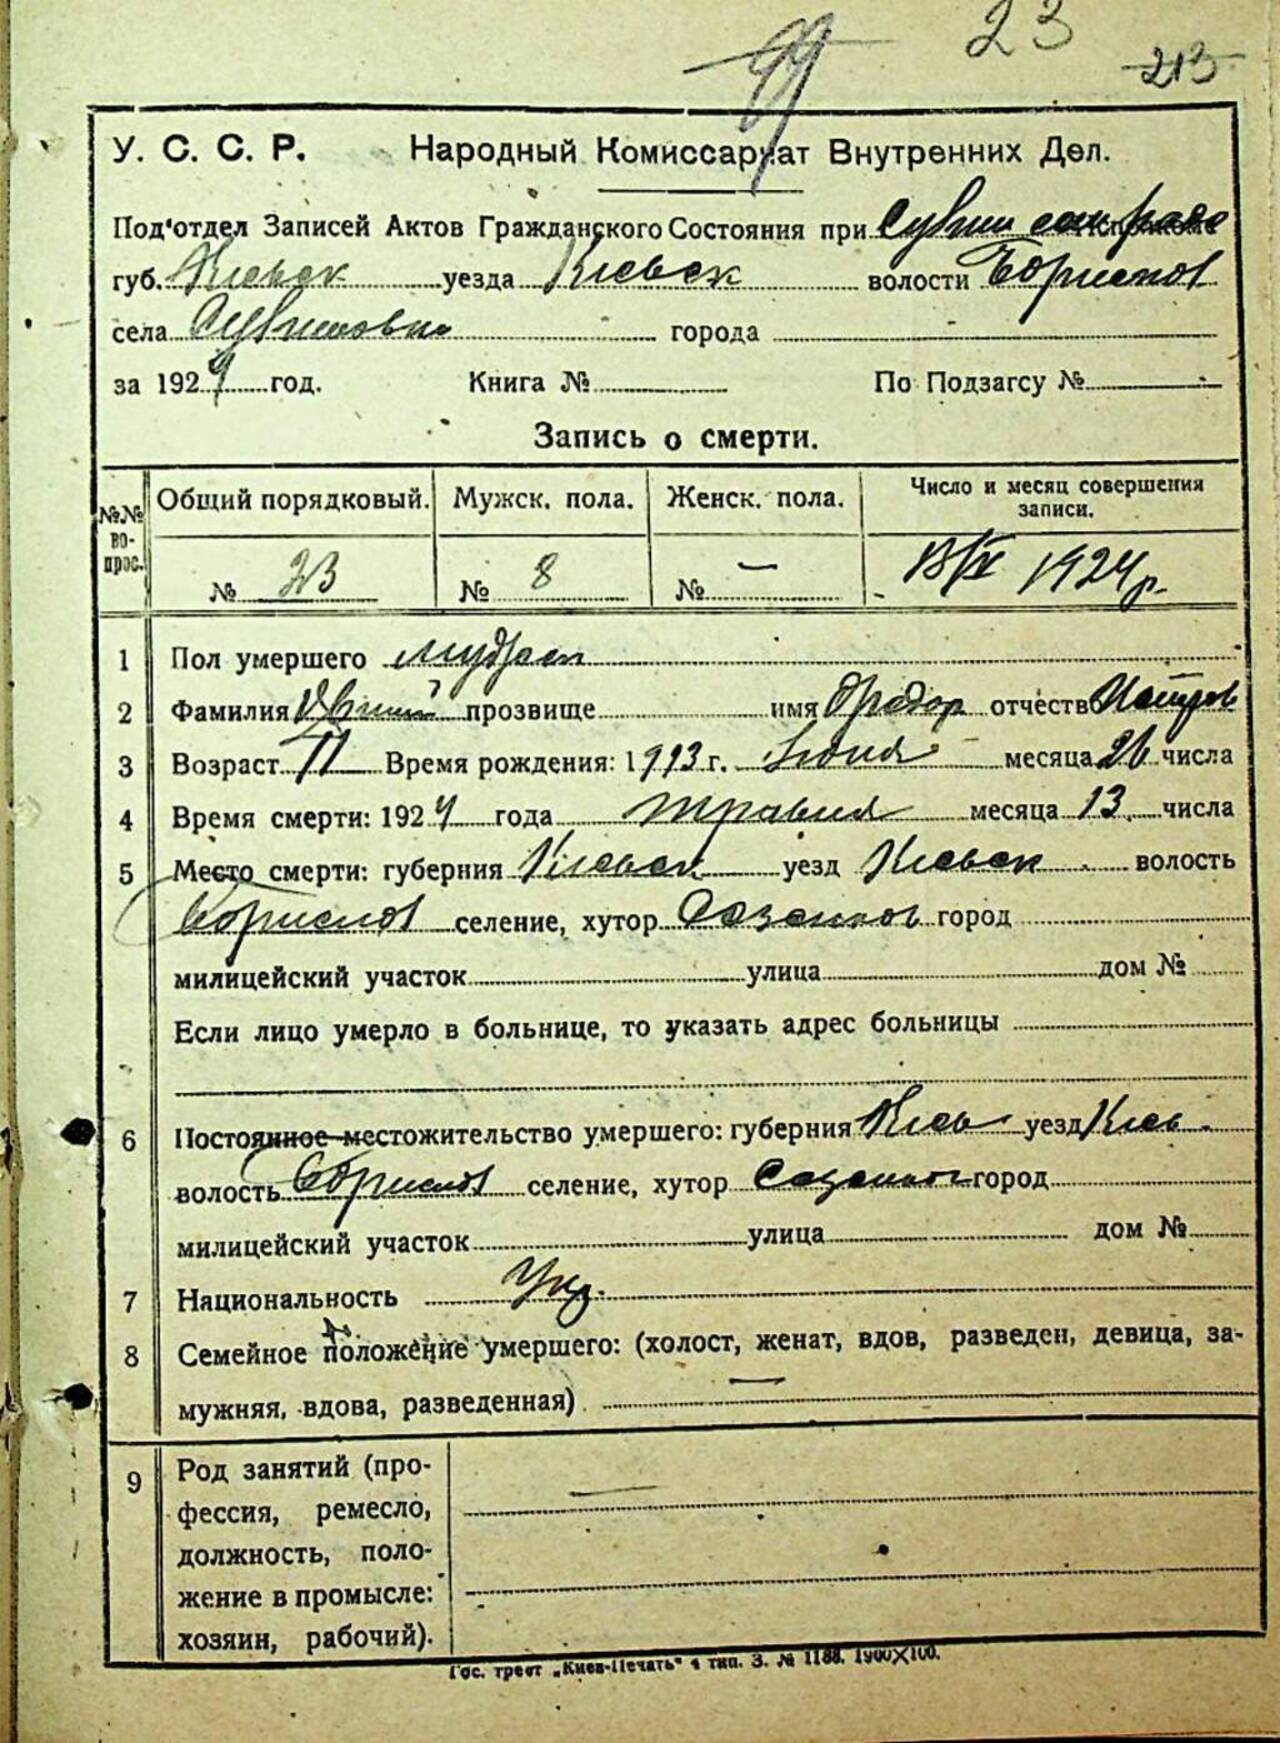 23
99
213
У. С. С. Р. Народный Комиссариат Внутренних Дел.
Под'отдел Записей Актов Гражданского Состояния при
губ. Киевск уезда Киевск волости Бориспол
села города
за 1924 год. Книга № По Подзагсу №
Запись о смерти.
№№ во- прос. Общий порядковый. Мужск. пола. Женск. пола. Число и месяц совершения записи.
№ 23 № 8 № — 13/IX 1924 р.
1 Пол умершего
2 Фамилия прозвище имя отчество
3 Возраст 11 Время рождения: 1913 г. месяца 26 числа
4 Время смерти: 1924 года травня месяца 13 числа
5 Место смерти: губерния Киевск уезд Киевск волость
Борислол селение, хутор город
милицейский участок улица дом №
Если лицо умерло в больнице, то указать адрес больницы
6 Постоянное местожительство умершего: губерния Киев уезд Киев.
волость селение, хутор город
милицейский участок улица дом №
7 Национальность Укр.
8 Семейное положение умершего: (холост, женат, вдов, разведен, девица, за-
мужняя, вдова, разведенная) —
9 Род занятий (про-
фессия, ремесло,
должность, поло-
жение в промысле:
хозяин, рабочий).
Гос. трест „Киев-Печать" 4 тип. З. № 1188. 1900×100.